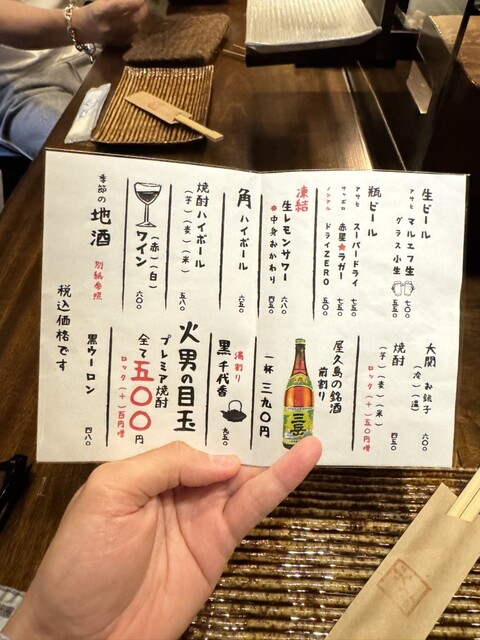 生ビール
アサヒ マルエフ生 七〇〇
グラス小生 五五〇
瓶ビール
アサヒ スーパードライ 七五五
サッポロ 赤星★ラガー 七五五
ノンアル ドライZERO 五〇〇
凍結
生レモンサワー 六八〇
中身おかわり 四五〇
角ハイボール 六五〇
焼酎ハイボール
(芋)(麦)(米) 五八〇
ワイン
(赤)(白) 六〇〇
季節の
地酒
別紙参照
税込価格です
大関 お銚子
(冷)(温) 六〇〇
焼酎
(芋)(麦)(米) 四五〇
ロック(+)五〇円増
屋久島の銘酒
前割り
三岳
一杯 三九〇円
湯割り
黒千代香 九五〇
火男の目玉
プレミア焼酎
全て五〇〇円
ロック(+)百円増
黒ウーロン 四八〇